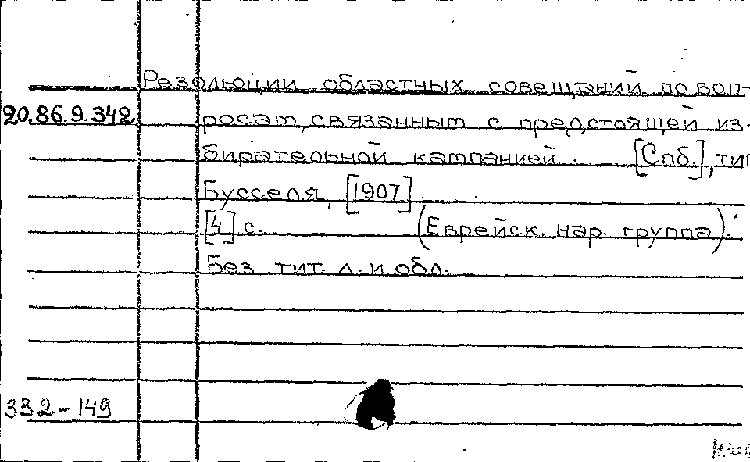 Резолюции областных совещаний по воп-
20.86.9.342 росам, связанным с предстоящей из-
бирательной кампанией. [Спб.], тип
Бусселя, [1907]
[4] с. (Еврейск. нар. группа).
Без тит. л. и обл.
332-149